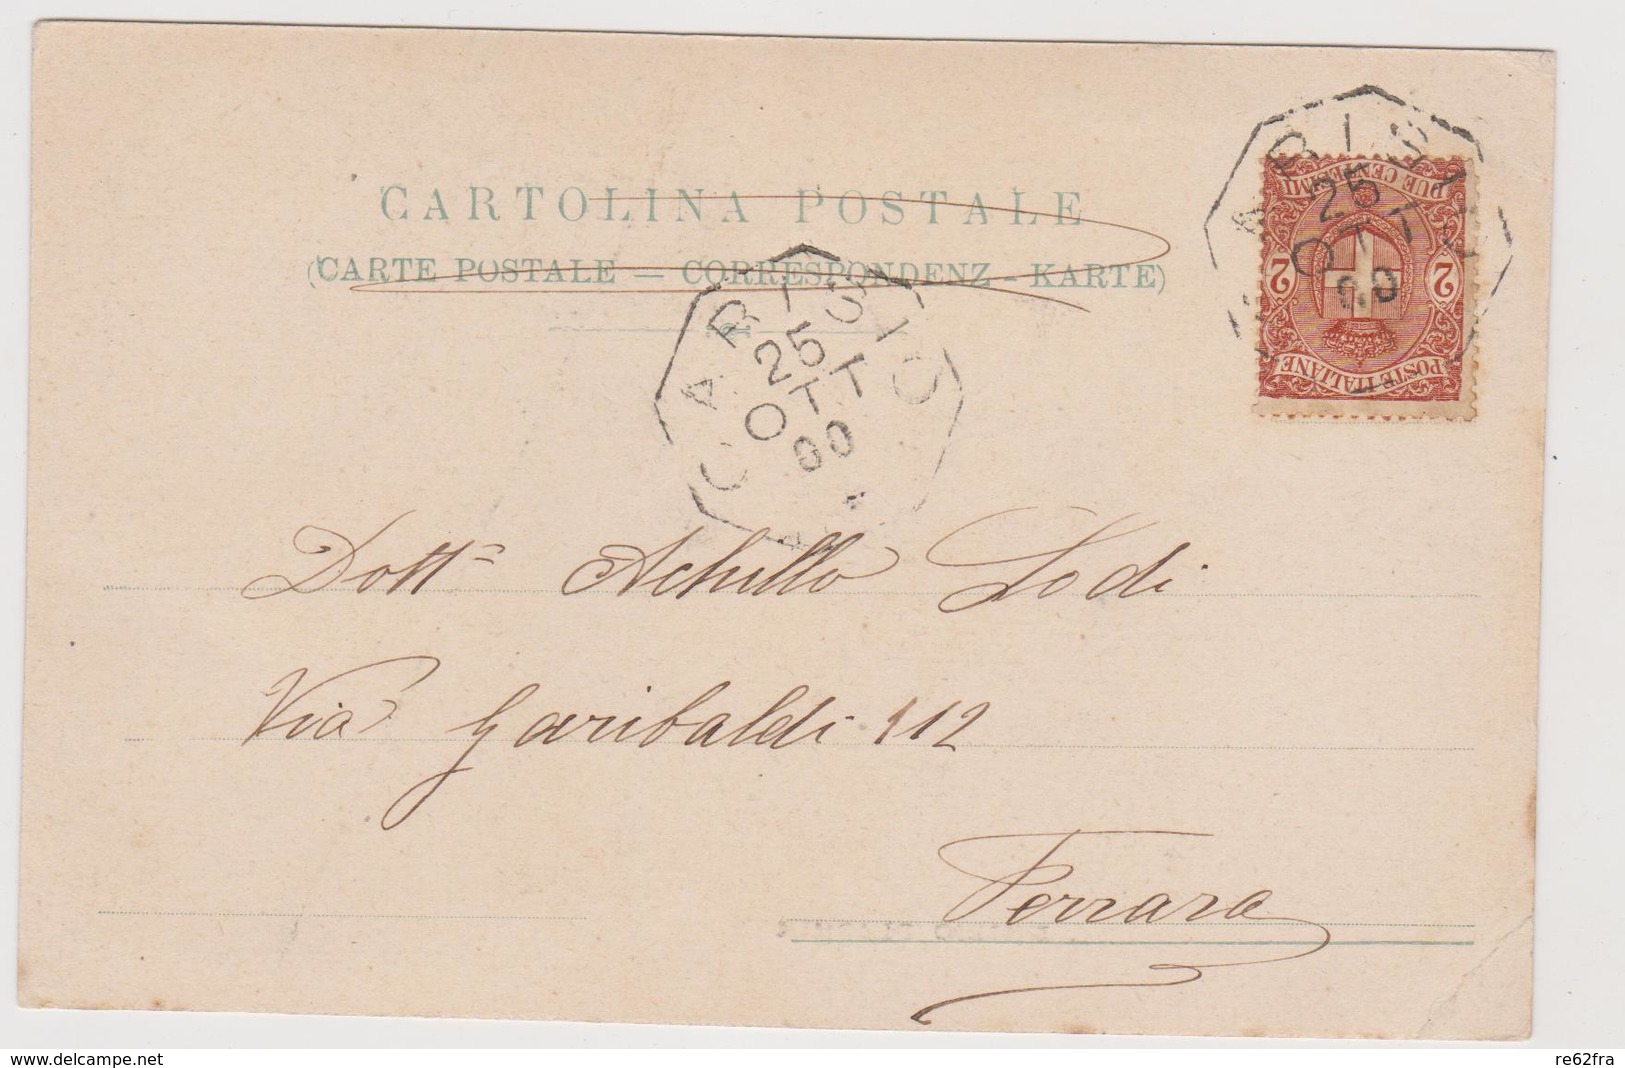 CARTOLINA POSTALE
(CARTE POSTALE — CORRESPONDENZ-KARTE)
CARISIO
25
OTT
00
DUE CENTESIMI
2 2
POSTE ITALIANE
25
OTT
00
Dottr Achille Lodi
Via Garibaldi 112
Ferrara
www.delcampe.net
re62fra